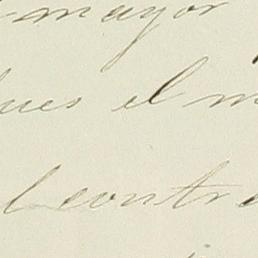 mayor
ues el m
lcontre